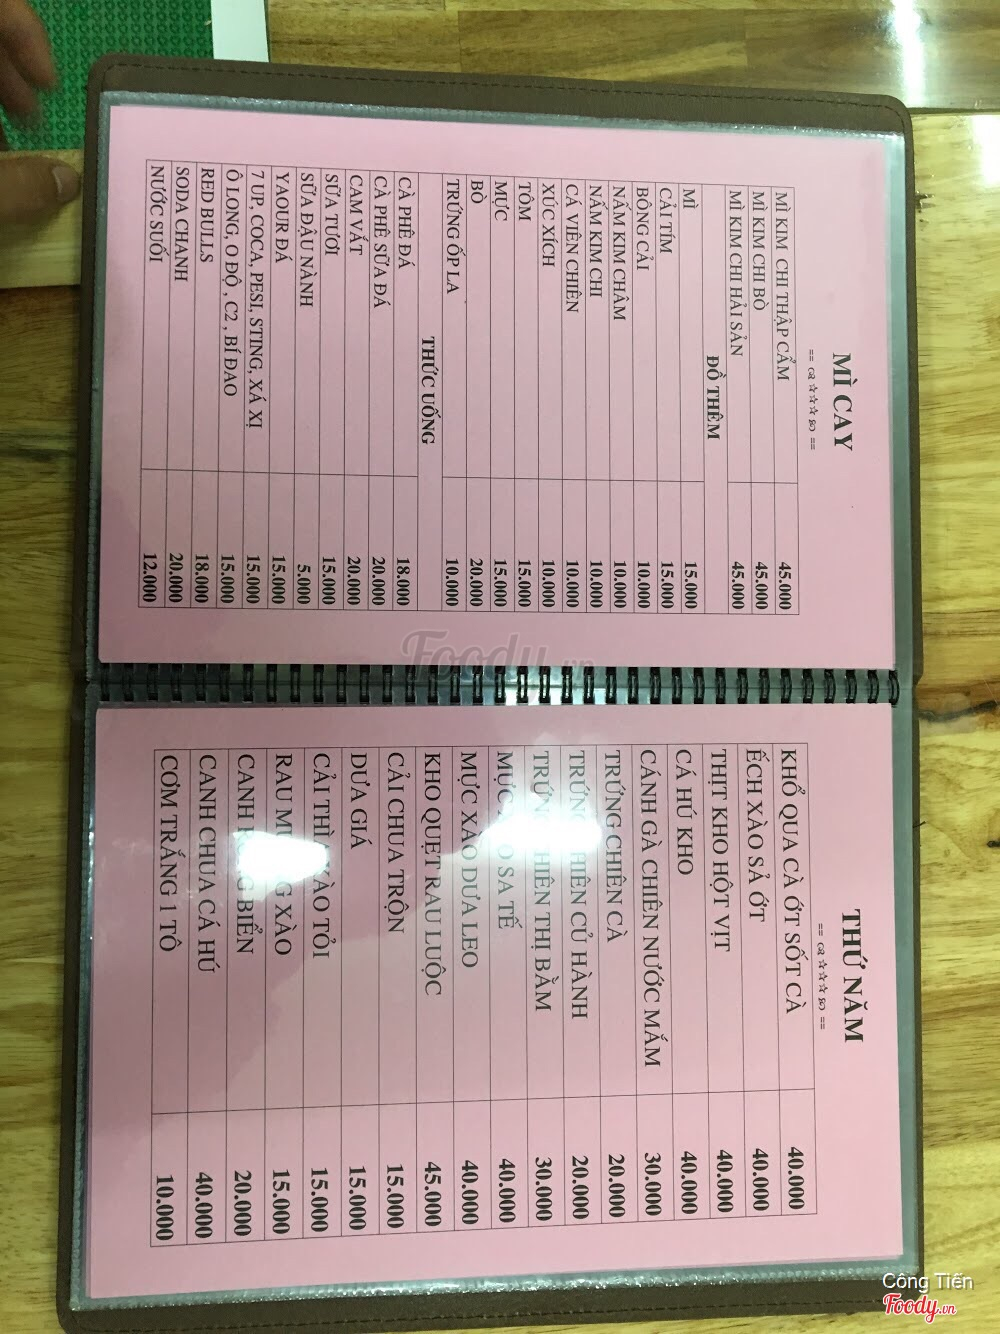 MÌ CAY
MÌ KIM CHI THẬP CẨM 45.000
MÌ KIM CHI BÒ 45.000
MÌ KIM CHI HẢI SẢN 45.000
ĐỒ THÊM
MÌ 15.000
CẢI TÍM 15.000
BÔNG CẢI 10.000
NẤM KIM CHÂM 10.000
NẤM KIM CHI 10.000
CÁ VIÊN CHIÊN 10.000
XÚC XÍCH 10.000
TÔM 15.000
MỰC 15.000
BÒ 20.000
TRỨNG ỐP LA 10.000
THỨC UỐNG
CÀ PHÊ ĐÁ 18.000
CÀ PHÊ SỮA ĐÁ 20.000
CAM VẮT 20.000
SỮA TƯƠI 15.000
SỮA ĐẬU NÀNH 5.000
YAOUR ĐÁ 15.000
7 UP, COCA, PESI, STING, XÁ XỊ 15.000
Ô LONG, O ĐỘ , C2 , BÍ ĐAO 15.000
RED BULLS 18.000
SODA CHANH 20.000
NƯỚC SUỐI 12.000
THỨ NĂM
KHỔ QUA CÀ ỚT SỐT CÀ 40.000
ẾCH XÀO SẢ ỚT 40.000
THỊT KHO HỘT VỊT 40.000
CÁ HÚ KHO 40.000
CÁNH GÀ CHIÊN NƯỚC MẮM 30.000
TRỨNG CHIÊN CÀ 20.000
TRỨNG CHIÊN CỦ HÀNH 20.000
TRỨNG CHIÊN THỊ BẰM 30.000
MỰC SA TẾ 40.000
MỰC XÀO DƯA LEO 40.000
KHO QUẸT RAU LUỘC 45.000
CẢI CHUA TRỘN 15.000
DƯA GIÁ 15.000
CẢI THÌA XÀO TỎI 15.000
RAU XÀO 15.000
CANH BIỂN 20.000
CANH CHUA CÁ HÚ 40.000
CƠM TRẮNG 1 TÔ 10.000
Foody.vn
Công Tiến
Foody.vn